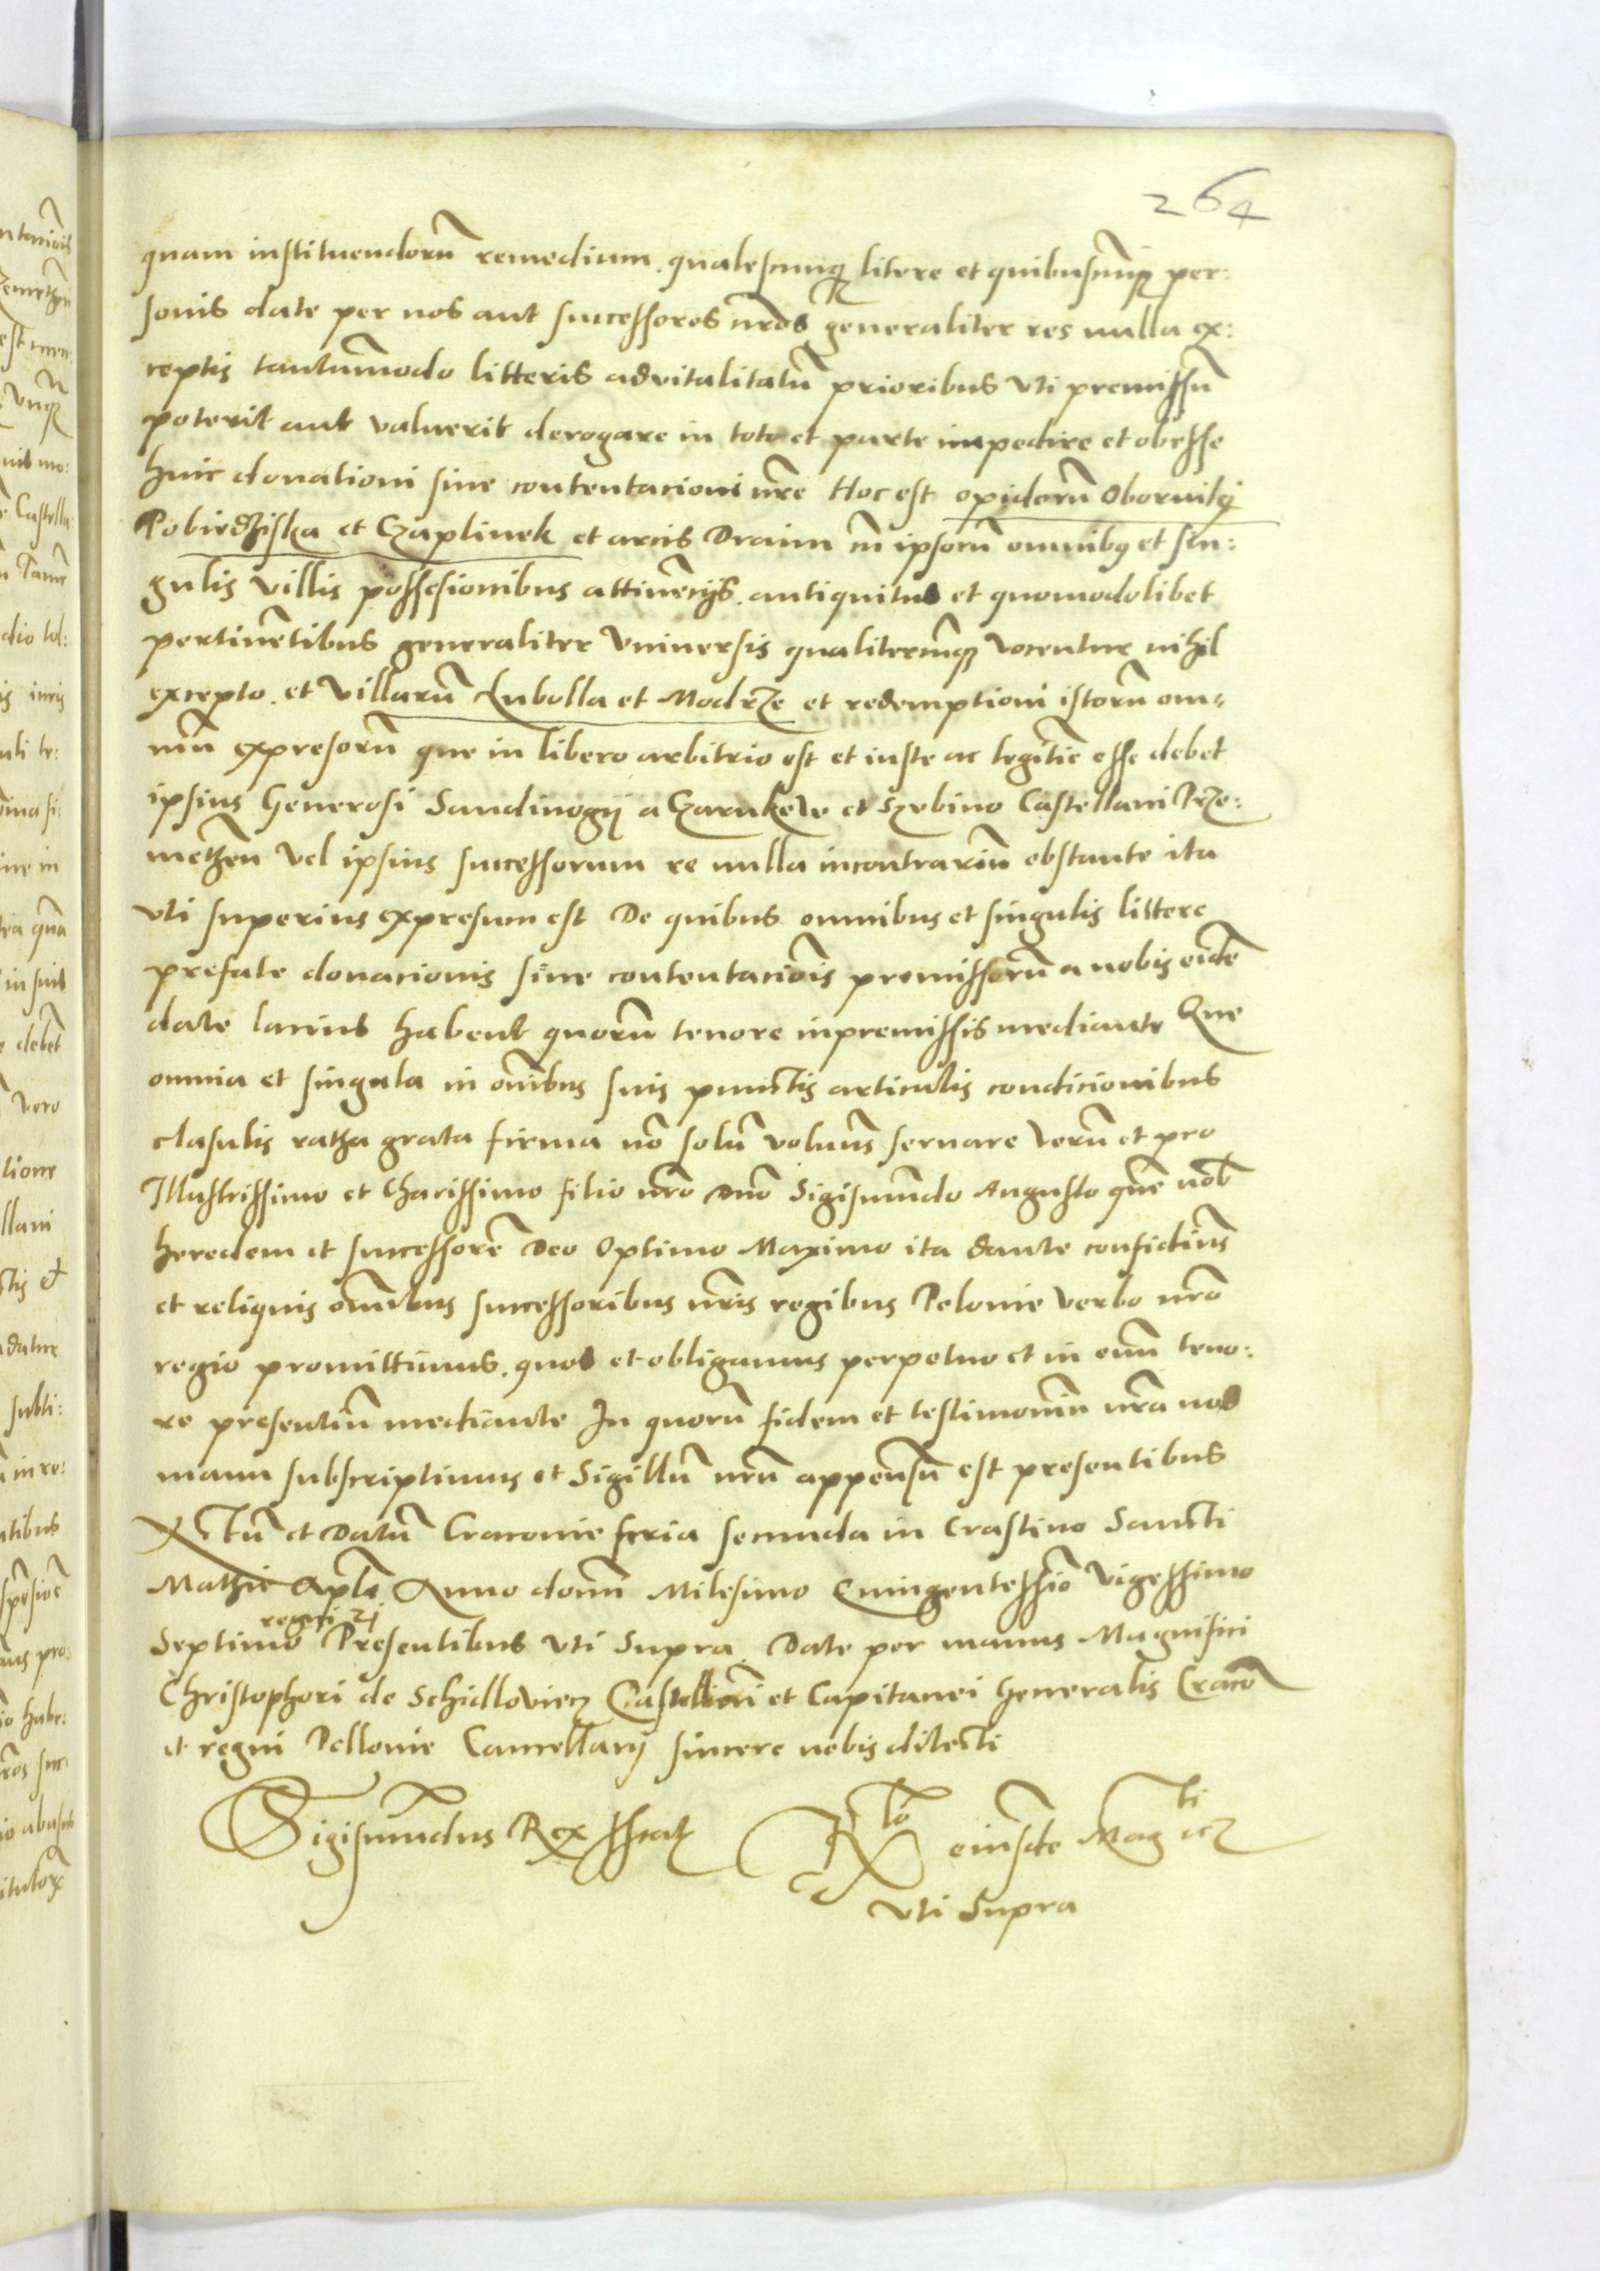 264
quam instituendorū remedium. qualescunq̄ litere et quibuscunq̄ per:
sonis date per nos aut successores nr̄os generaliter res nulla ex:
ceptis tantūmodo litteris advitalitatū prioribus vti premissū
poterit aut valuerit derogare in toto et parte impedire et obesse
huic donationi sive contentacioni nr̄e Hoc est opidorū Obornikÿ
Pobiedziska et Czaplinek et arcis Draim cū ipsorū omnibꝰ et sin:
gulis villis possesionibus attinēcijs. antiquitus et quomodolibet
pertinētibus generaliter vniuersis qualitercūq̄ vocentur nihil
excepto. et villarū Lubolla et Modrze et redemptioni istorū om=
niū expresorū que in libero arbitrio est et iuste ac legitīe esse debet
ipsius Generosi Sandivogij a Czarnkow et Szebino Castellani Prze:
methen̄ vel ipsius successorum re nulla incontrariū obstante ita
vti superius expresum est De quibus omnibus et singulis littere
prefate donacionis sive contentaciōis premissorū a nobis eidē
date lacius habent quorū tenore inpremissis mediante Que
omnia et singula in oīnbus suis punctis articulis condicionibus
clasulis ratha grata firma nō solū volum̄s servare verū et pro
Illustrissimo et Charissimo filio nr̄o Dn̄o Sigismūndo Augusto quē nob̄
heredem et successorē Deo Optimo Maximo ita dante confidim̄s
et reliquis oīnbus successoribus nr̄is regibus Polonie verbo nr̄o
regio promittimus. quos et obligamus perpetuo et in euū teno:
re presentiū mediante In quorū fidem et testimoniū nr̄a nos
manu subscriptimus et Sigillū nr̄ū appensū est presentibus
Actū et Datū Cracovie feria secunda in Crastino Sancti
Mathie Apl̄i Anno domī Milesimo Quingentessīo vigessimo
regni 21
Septimo Presentibus vti Supra. Date per manus Magnifici
Christophori de Schidloviecz Castellani et Capitanei Generalis Cracō
et regni Pollonie Cancellarij sincere nobis dilecti
Sigismūndus Rex sscat
R̄lō eiusdē Magti etz
vti Supra